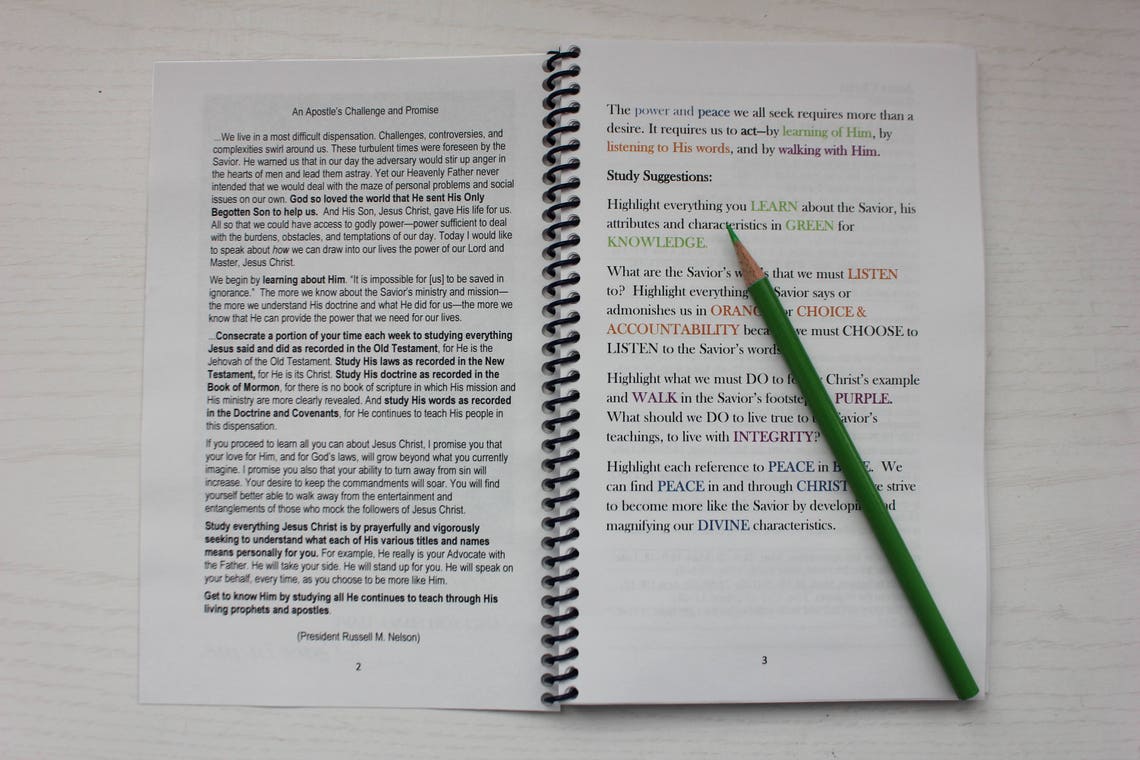 An Apostle's Challenge and Promise
...We live in a most difficult dispensation. Challenges, controversies, and
complexities swirl around us. These turbulent times were foreseen by the
Savior. He warned us that in our day the adversary would stir up anger in
the hearts of men and lead them astray. Yet our Heavenly Father never
intended that we would deal with the maze of personal problems and social
issues on our own. God so loved the world that He sent His Only
Begotten Son to help us. And His Son, Jesus Christ, gave His life for us.
All so that we could have access to godly power—power sufficient to deal
with the burdens, obstacles, and temptations of our day. Today I would like
to speak about how we can draw into our lives the power of our Lord and
Master, Jesus Christ.
We begin by learning about Him. "It is impossible for [us] to be saved in
ignorance." The more we know about the Savior's ministry and mission—
the more we understand His doctrine and what He did for us—the more we
know that He can provide the power that we need for our lives.
...Consecrate a portion of your time each week to studying everything
Jesus said and did as recorded in the Old Testament, for He is the
Jehovah of the Old Testament. Study His laws as recorded in the New
Testament, for He is its Christ. Study His doctrine as recorded in the
Book of Mormon, for there is no book of scripture in which His mission and
His ministry are more clearly revealed. And study His words as recorded
in the Doctrine and Covenants, for He continues to teach His people in
this dispensation.
If you proceed to learn all you can about Jesus Christ, I promise you that
your love for Him, and for God's laws, will grow beyond what you currently
imagine. I promise you also that your ability to turn away from sin will
increase. Your desire to keep the commandments will soar. You will find
yourself better able to walk away from the entertainment and
entanglements of those who mock the followers of Jesus Christ.
Study everything Jesus Christ is by prayerfully and vigorously
seeking to understand what each of His various titles and names
means personally for you. For example, He really is your Advocate with
the Father. He will take your side. He will stand up for you. He will speak on
your behalf, every time, as you choose to be more like Him.
Get to know Him by studying all He continues to teach through His
living prophets and apostles.
(President Russell M. Nelson)
2
The power and peace we all seek requires more than a
desire. It requires us to act—by learning of Him, by
listening to His words, and by walking with Him.
Study Suggestions:
Highlight everything you LEARN about the Savior, his
attributes and characteristics in GREEN for
KNOWLEDGE.
What are the Savior's that we must LISTEN
to? Highlight everything Savior says or
admonishes us in CHOICE &
ACCOUNTABILITY we must CHOOSE to
LISTEN to the Savior's words
Highlight what we must DO to Christ's example
and WALK in the Savior's PURPLE.
What should we DO to live true to Savior's
teachings, to live with INTEGRITY?
Highlight each reference to PEACE in We
can find PEACE in and through CHRIST strive
to become more like the Savior by
magnifying our DIVINE characteristics.
3